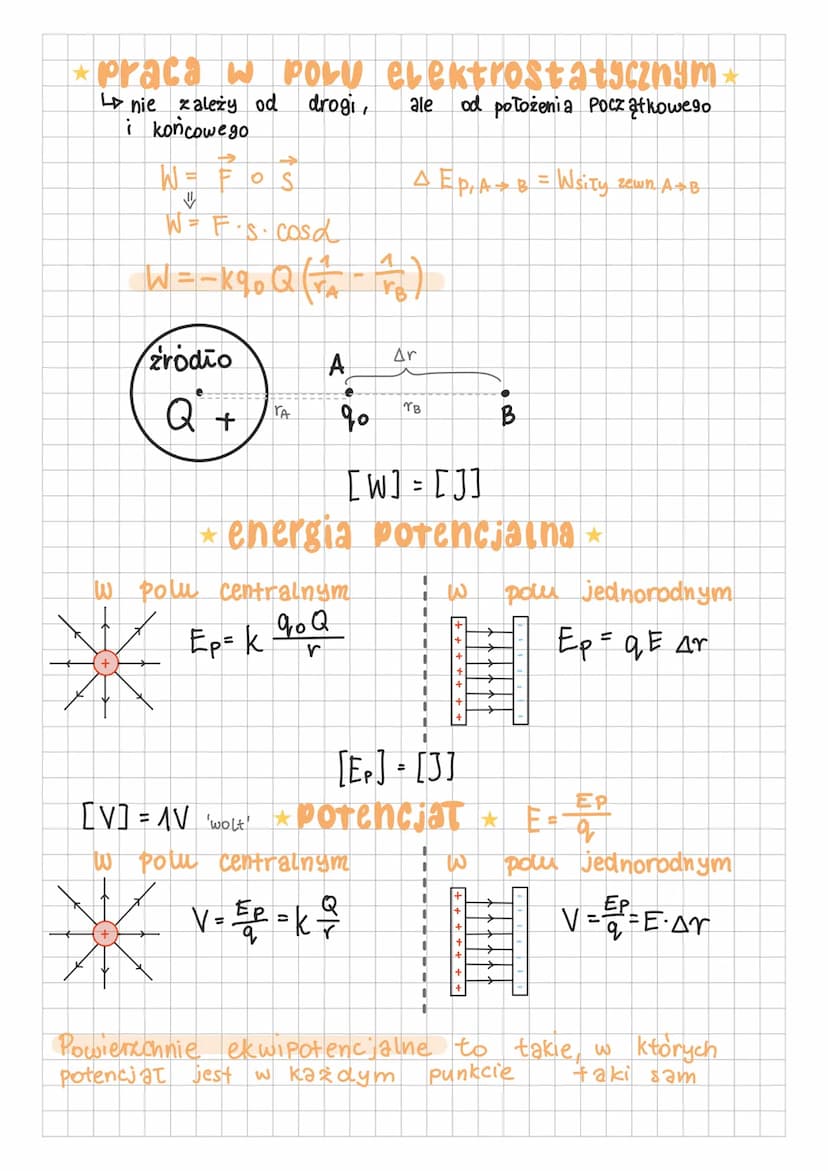 praca w polu elektrostatycznym
↳ nie zależy od drogi, ale od położenia początkowego
i końcowego
W = F→ ∘ s→
ΔEp, A→B = Wsiły zewn. A→B
⇓
W = F·s·cosα
W = -kq₀Q(1/rA - 1/rB)
źródło
A
Δr
Q +
rA
q₀
rB
B
[W] = [J]
energia potencjalna
w polu centralnym
w polu jednorodnym
Ep = k q₀Q/r
Ep = qE Δr
[Ep] = [J]
[V] = 1V 'wolt'
potencjał
E = Ep/q
w polu centralnym
w polu jednorodnym
V = Ep/q = k Q/r
V = Ep/q = E·Δr
Powierzchnie ekwipotencjalne to takie, w których
potencjał jest w każdym punkcie taki sam